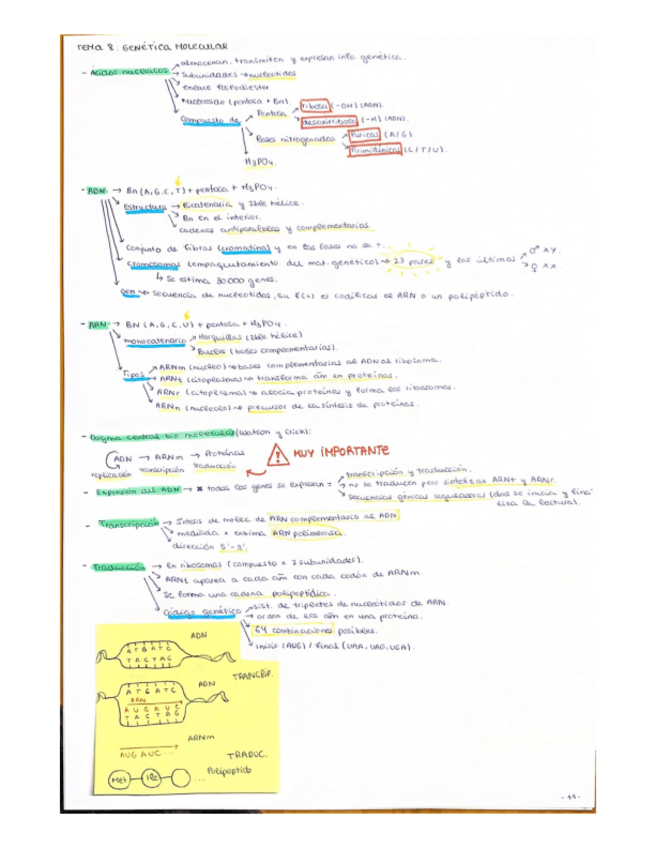 TEMA 8: GENÉTICA MOLECULAR
- Ácidos nucleicos → almacenan, transmiten y expresan info. genética.
→ Subunidades → nucleótidos
→ enlace fosfodiester
→ Nucleósido (pentosa + Bn).
→ Compuesto de → Pentosa → ribosa (-OH) (ARN).
→ desoxirribosa (-H) (ADN).
→ Bases nitrogenadas → Púricas (A/G).
→ Pirimidínicas (C/T/U).
→ H3PO4.
- ADN → Bn (A,G,C,T) + pentosa + H3PO4.
→ Estructura → Bicatenaria y doble hélice.
→ Bn en el interior.
→ cadenas antiparalelas y complementarias
→ Conjunto de fibras (cromatina) y en las fases no se +.
→ Cromosomas (empaquetamiento del mat. genético) → 23 pares y los últimos → ♂ XY.
→ ♀ XX.
↳ Se estima 30000 genes.
→ Gen → secuencia de nucleótidos, su f(x) es codificar el ARN o un polipéptido.
- ARN → BN (A,G,C,U) + pentosa + H3PO4.
→ monocatenario → Horquillas (doble hélice)
→ Bucles (bases complementarias).
→ Tipos → ARNm (núcleo) → bases complementarias al ADN al ribosoma.
→ ARNt (citoplasma) → transforma am en proteínas.
→ ARNr (citoplasma) → asocia proteínas y forma los ribosomas.
→ ARNn (nucleolo) → precursor de la síntesis de proteínas.
- Dogma central bio molecular (Watson y Crick):
ADN → ARNm → Proteínas
replicación transcripción traducción
⚠ MUY IMPORTANTE
- Expresión del ADN → * todos los genes se expresan = → transcripción y traducción.
→ no se traducen pero sintetizan ARNt y ARNr.
→ secuencias génicas reguladoras (dnd se inicia y finaliza la lectura).
- Transcripción → síntesis de molec. de ARN complementario al ADN.
→ mediada x enzima ARN polimerasa.
→ dirección 5'-3'.
- Traducción → En ribosomas (compuesto x 2 subunidades).
→ ARNt aparea a cada am con cada codón de ARNm.
→ Se forma una cadena polipeptídica.
→ Código genético → sist. de tripletes de nucleótidos de ARN.
→ orden de los am en una proteína.
→ 64 combinaciones posibles.
→ Inicio (AUG) / Final (UAA, UAG, UGA).
ADN
ATGATC
TACTAG
TRANSCRIP.
ADN
ATGATC
ARN
AUGAUC
TACTAG
ARNm
AUG AUC ...
TRADUC.
Met Ile ... Polipéptido
- 11 -